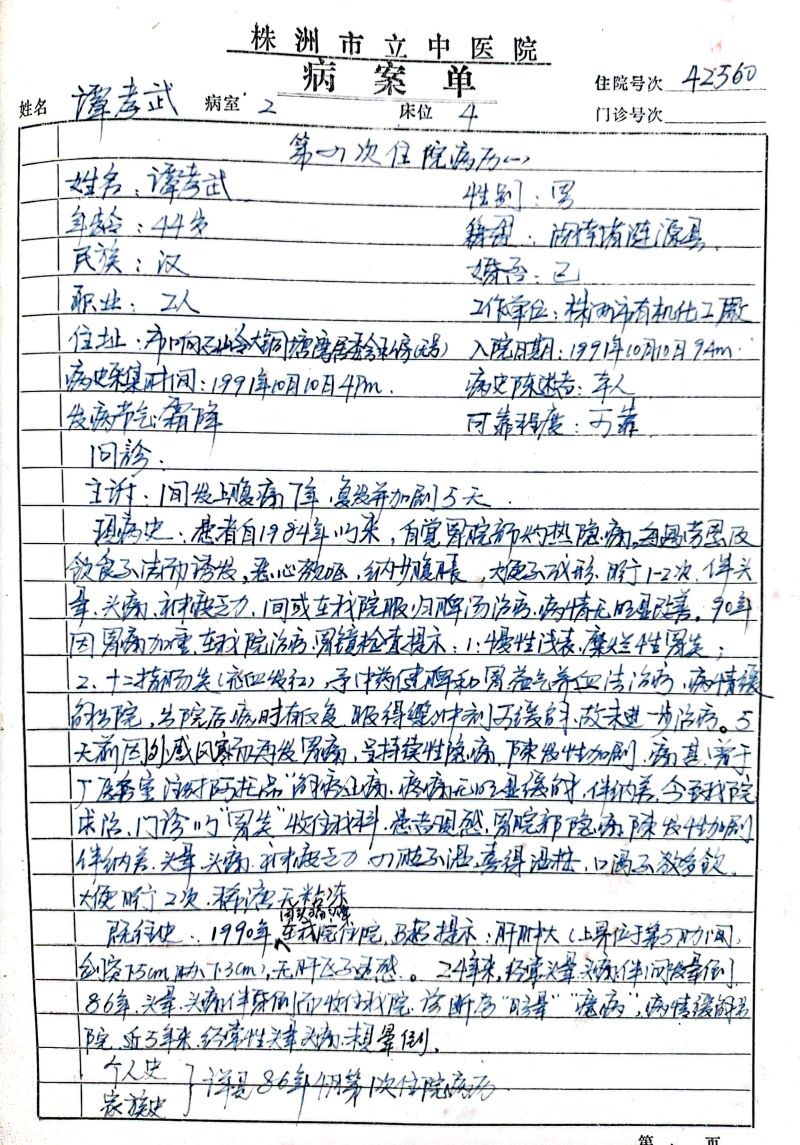 株洲市立中医院
病案单
住院号次 42560
姓名 谭孝武 病室 2 床位 4 门诊号次
第四次住院病历(一)
姓名：谭孝武 性别：男
年龄：44岁 籍贯：湖南省涟源县
民族：汉 婚否：已
职业：工人 工作单位：株洲市有机化工厂
住址：市响石岭大铜塘 入院日期：1991年10月10日9Am.
病史采集时间：1991年10月10日4Pm. 病史陈述者：本人
发病节气：霜降 可靠程度：可靠
问诊：
主诉：间发上腹痛7年，复发并加剧5天.
现病史：患者自1984年以来，自觉胃脘部灼热隐痛，每因劳累及
饮食不洁而诱发，恶心欲呕，纳少腹胀，大便不成形，日行1-2次，伴头
晕、头痛、神疲乏力，间或在我院服归脾汤治疗，病情无明显改善。90年
因胃痛加重，在我院治疗，胃镜检查提示：1.慢性浅表，糜烂性胃炎；
2.十二指肠炎(充血发红)，予中药健脾和胃益气养血法治疗，病情缓
解出院，出院后痛时有反复，服得缓冲剂可缓解，故未进一步治疗。5
天前因外感风寒而再发胃痛，呈持续性隐痛，阵发性加剧，痛甚，曾于
厂医务室注射阿托品"解痉止痛，疼痛无明显缓解，伴纳差，今至我院
求治，门诊以"胃炎"收住我科，患者现感，胃脘部隐痛，阵发性加剧
伴纳差，头晕头痛，神疲乏力，四肢不温，喜得温热，口渴不欲多饮，
大便日行2次，稀溏，无粘冻
既往史：1990年因胃痛在我院住院，B超提示：肝肿大(上界位于第5肋间，
剑突下5cm，肋下3cm)，无肝区不适感。24年来，经常头晕、头痛，伴间发晕倒，
86年，头晕、头痛，伴昏倒而收住我院，诊断为"眩晕""痫病"，病情缓解出
院，近5年来，经常性头晕头痛，未晕倒.
个人史
家族史
}详见86年4月第1次住院病历.
第 页